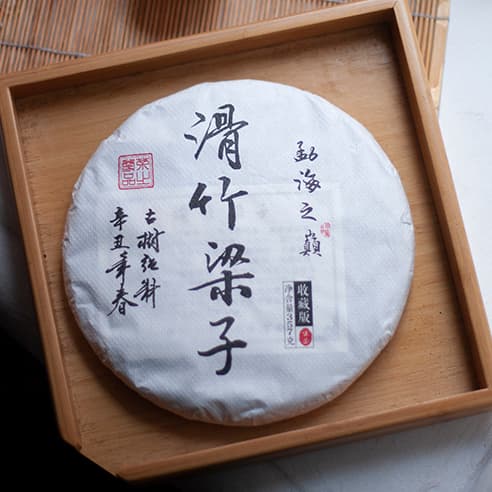 勐海之巅
收藏版
净含量357克
滑竹梁子
古树纯料
辛丑年春